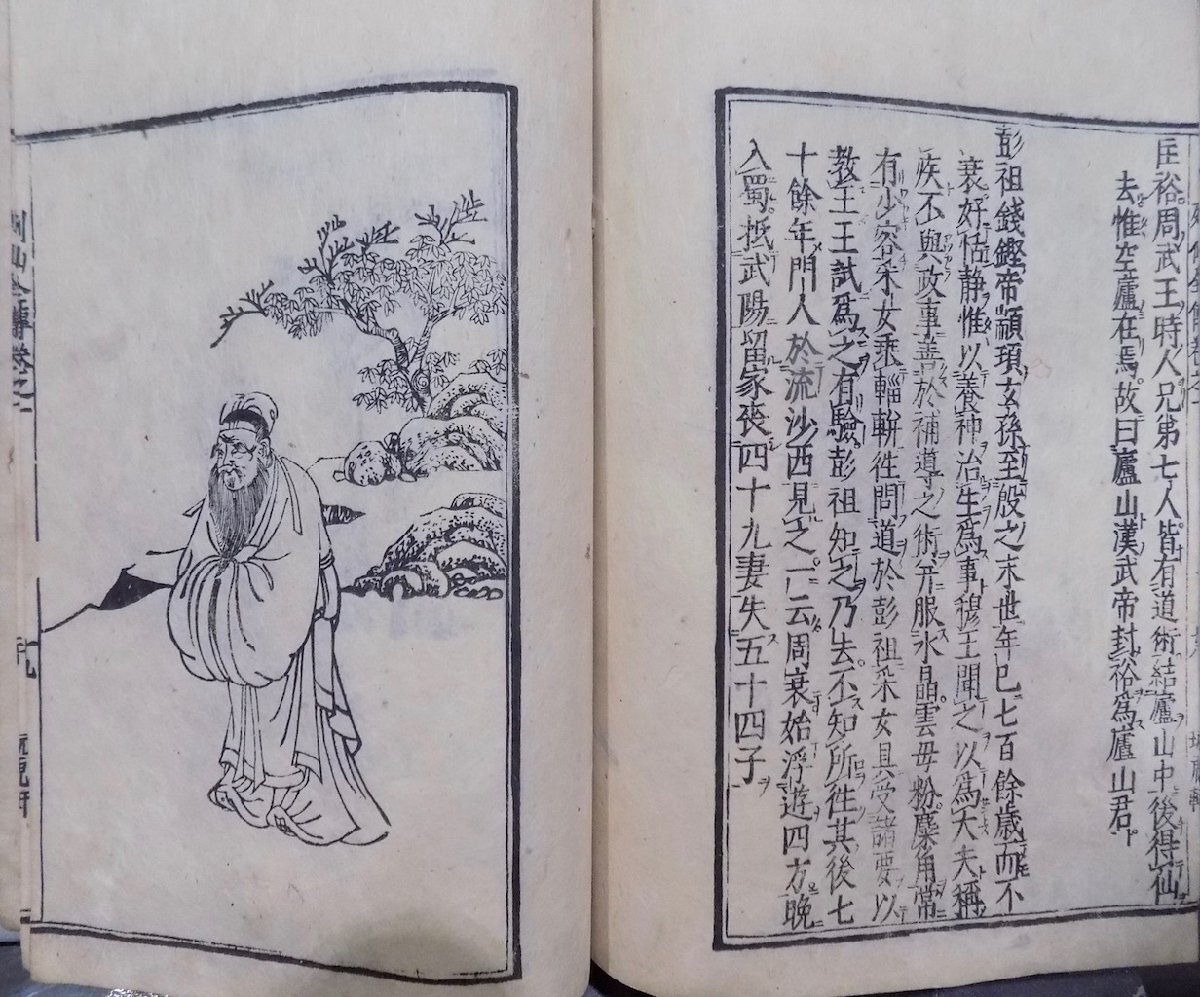 匡裕周武王時人兄弟七人皆有道術結廬山中後得仙
去惟空廬在焉故曰廬山漢武帝封裕爲廬山君
彭祖錢鏗帝顓頊玄孫至殷之末世年已七百餘歲而不
衰好恬静惟以養神治生爲事穆王聞之以爲大夫稱
疾不與政事善於補導之術并服水晶雲母粉麋角常
有少容采女乘輜軿徃問道於彭祖采女具受諸要以
教王王試爲之有驗彭祖知之乃去不知所徃其後七
十餘年門人於流沙西見之一云周衰始浮遊四方晩
入蜀抵武陽留家喪四十九妻失五十四子
列仙全傳卷之一
十九